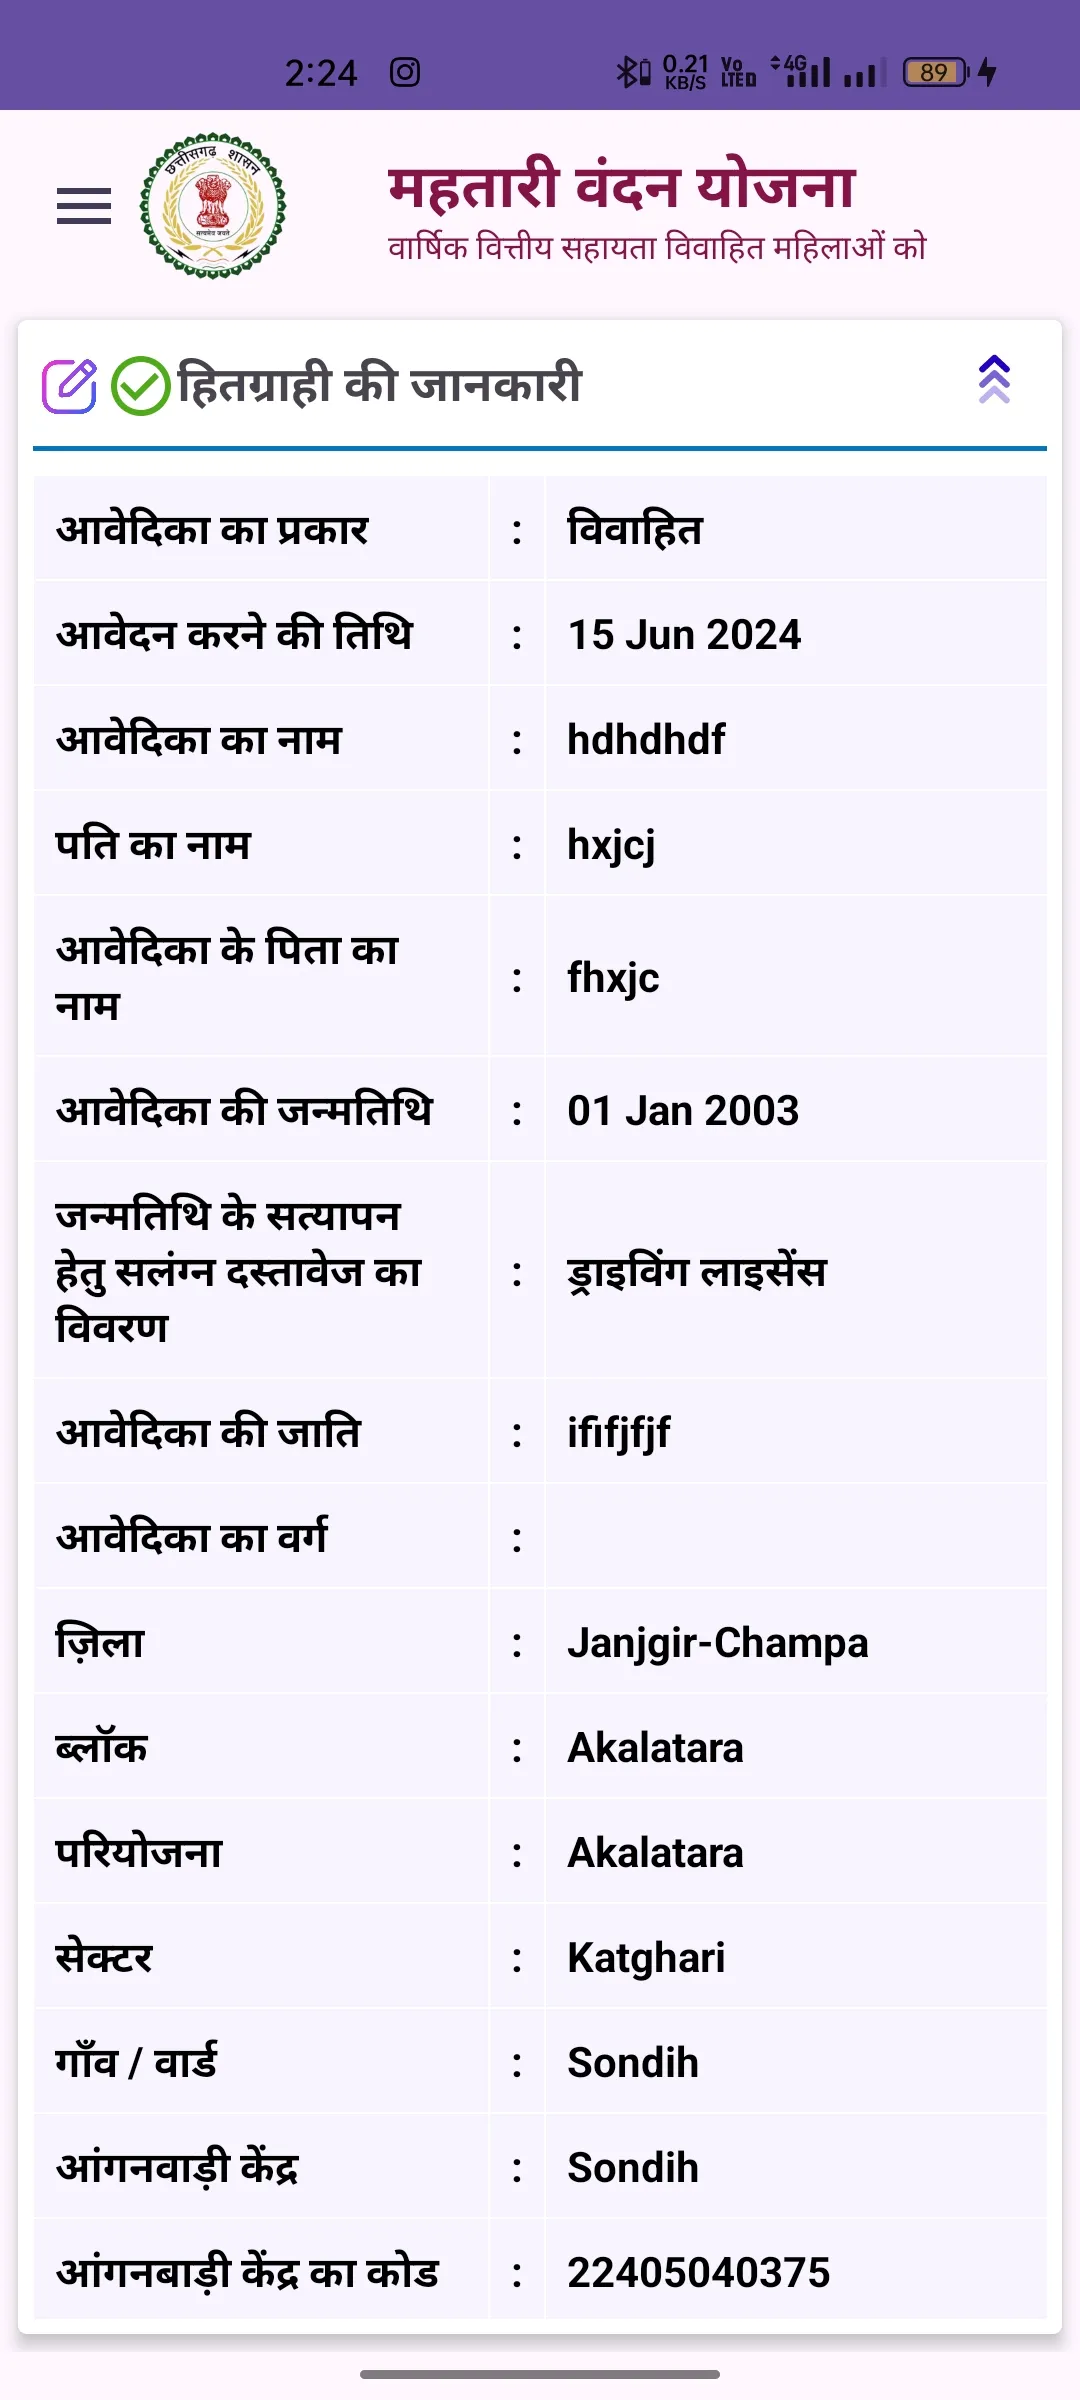 2:24 0.21 KB/S Vo LTE 4G 89
छत्तीसगढ़ शासन
सत्यमेव जयते
महतारी वंदन योजना
वार्षिक वित्तीय सहायता विवाहित महिलाओं को
हितग्राही की जानकारी
आवेदिका का प्रकार : विवाहित
आवेदन करने की तिथि : 15 Jun 2024
आवेदिका का नाम : hdhdhdf
पति का नाम : hxjcj
आवेदिका के पिता का
नाम : fhxjc
आवेदिका की जन्मतिथि : 01 Jan 2003
जन्मतिथि के सत्यापन
हेतु सलंग्न दस्तावेज का : ड्राइविंग लाइसेंस
विवरण
आवेदिका की जाति : ififjfjf
आवेदिका का वर्ग :
ज़िला : Janjgir-Champa
ब्लॉक : Akalatara
परियोजना : Akalatara
सेक्टर : Katghari
गाँव / वार्ड : Sondih
आंगनवाड़ी केंद्र : Sondih
आंगनबाड़ी केंद्र का कोड : 22405040375